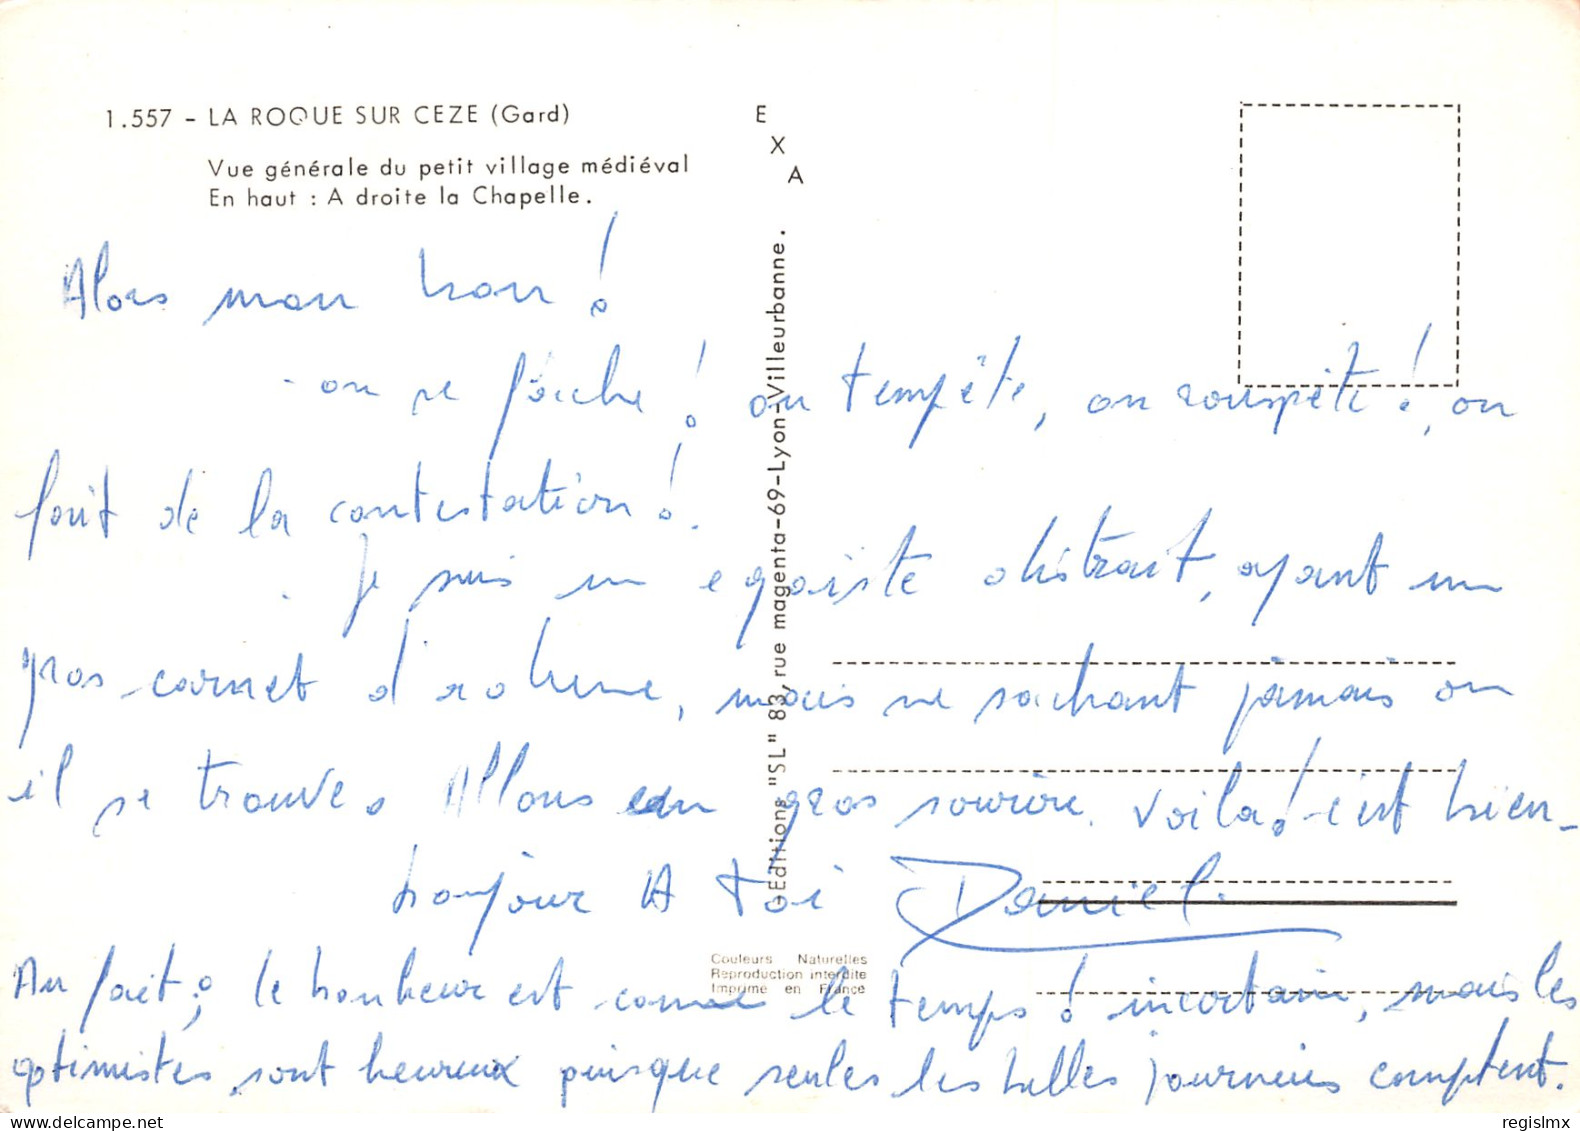 1.557 - LA ROQUE SUR CEZE (Gard)
Vue générale du petit village médiéval
En haut : A droite la Chapelle.
E X A
Alors mon bon !
on se fâche ! on tempête, on rouspète !, on
fait de la contestation !.
Je suis un egoïste distrait, ayant un
gros carnet d'adresse, mais ne sachant jamais où
il se trouve. Allons un gros sourire. Voilà ! c'est bien -
bonjour A toi Daniel.
Au fait ; le bonheur est comme le temps ! incertain, mais les
optimistes sont heureux puisque seules les belles journées comptent.
Editions "SL" 83, rue magenta-69-Lyon-Villeurbanne.
Couleurs Naturelles
Reproduction interdite
Imprime en France
regislmx